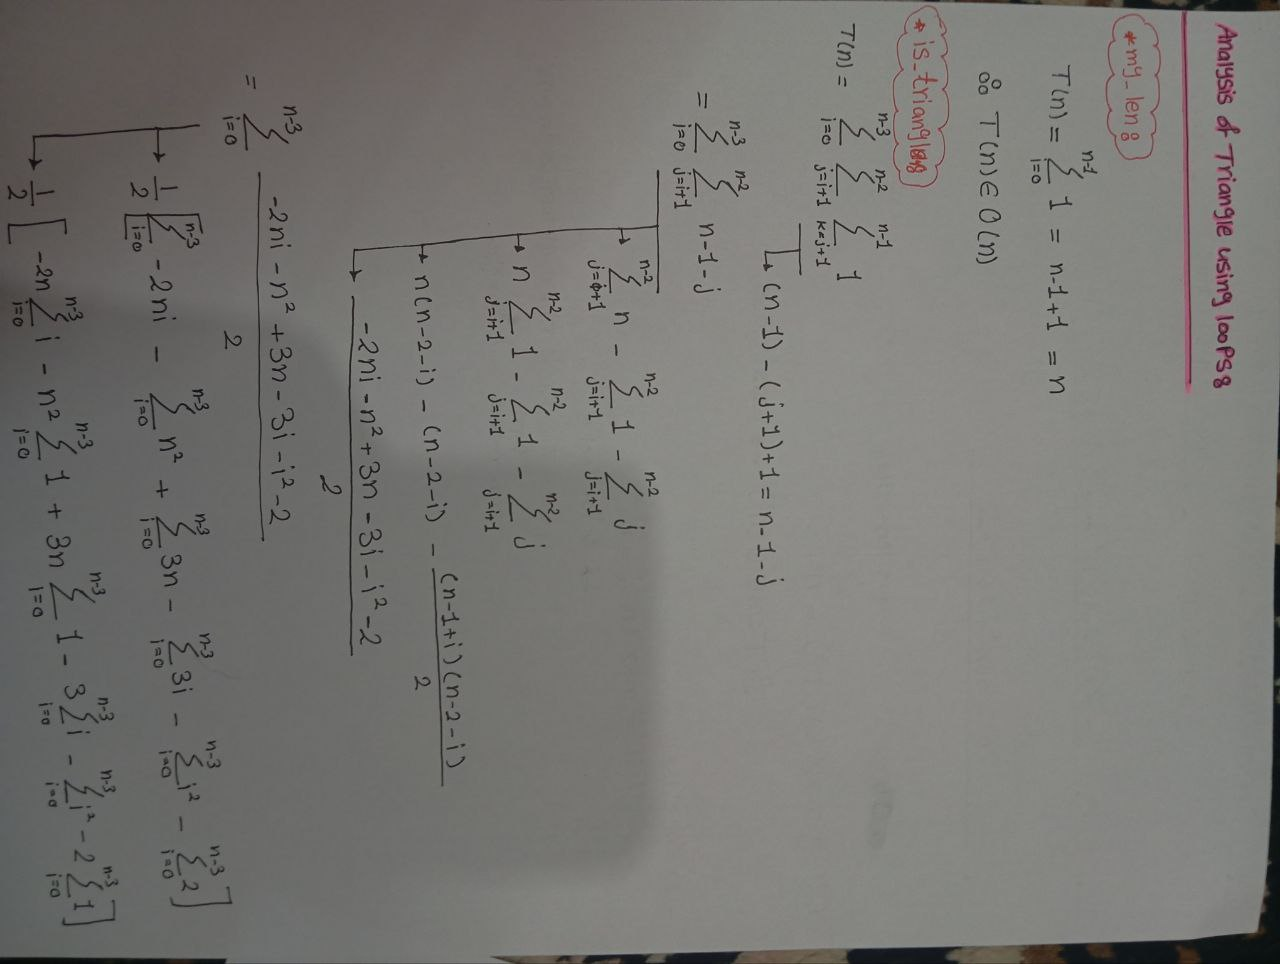 Analysis of Triangle using loops:
*my_len:
T(n) = \sum_{i=0}^{n-1} 1 = n-1+1 = n
∴ T(n) ∈ O(n)
*is_triangle:
T(n) = \sum_{i=0}^{n-3} \sum_{j=i+1}^{n-2} \sum_{k=j+1}^{n-1} 1
↳ (n-1) - (j+1)+1 = n-1-j
= \sum_{i=0}^{n-3} \sum_{j=i+1}^{n-2} n-1-j
\sum_{j=i+1}^{n-2} n - \sum_{j=i+1}^{n-2} 1 - \sum_{j=i+1}^{n-2} j
n \sum_{j=i+1}^{n-2} 1 - \sum_{j=i+1}^{n-2} 1 - \sum_{j=i+1}^{n-2} j
n(n-2-i) - (n-2-i) - \frac{(n-1+i)(n-2-i)}{2}
\frac{-2ni-n^2+3n-3i-i^2-2}{2}
= \sum_{i=0}^{n-3} \frac{-2ni-n^2+3n-3i-i^2-2}{2}
\frac{1}{2} [\sum_{i=0}^{n-3} -2ni - \sum_{i=0}^{n-3} n^2 + \sum_{i=0}^{n-3} 3n - \sum_{i=0}^{n-3} 3i - \sum_{i=0}^{n-3} i^2 - \sum_{i=0}^{n-3} 2]
\frac{1}{2} [-2n \sum_{i=0}^{n-3} i - n^2 \sum_{i=0}^{n-3} 1 + 3n \sum_{i=0}^{n-3} 1 - 3 \sum_{i=0}^{n-3} i - \sum_{i=0}^{n-3} i^2 - 2 \sum_{i=0}^{n-3} 1]